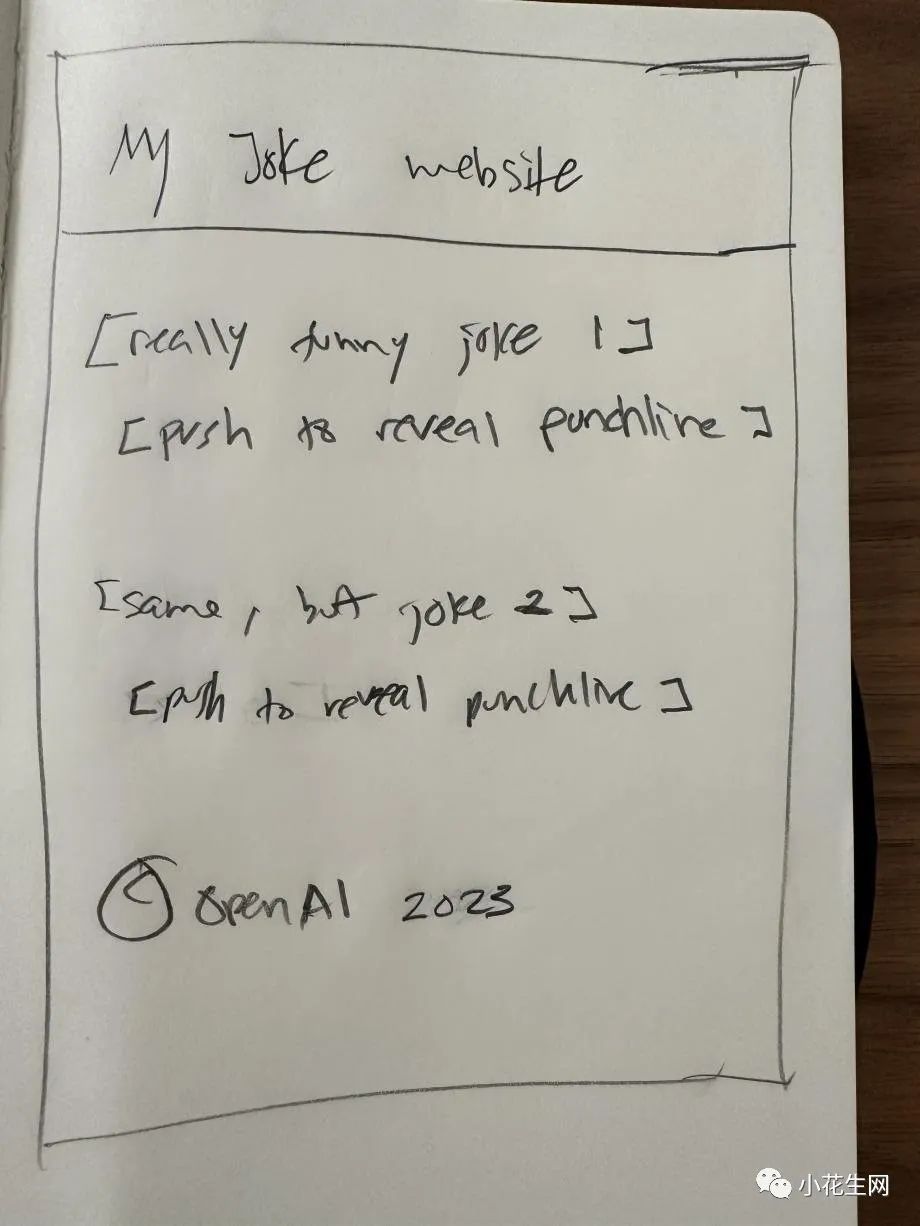 My Joke website
[really funny joke 1]
[push to reveal punchline]
[same, but joke 2]
[push to reveal punchline]
© OpenAI 2023
小花生网